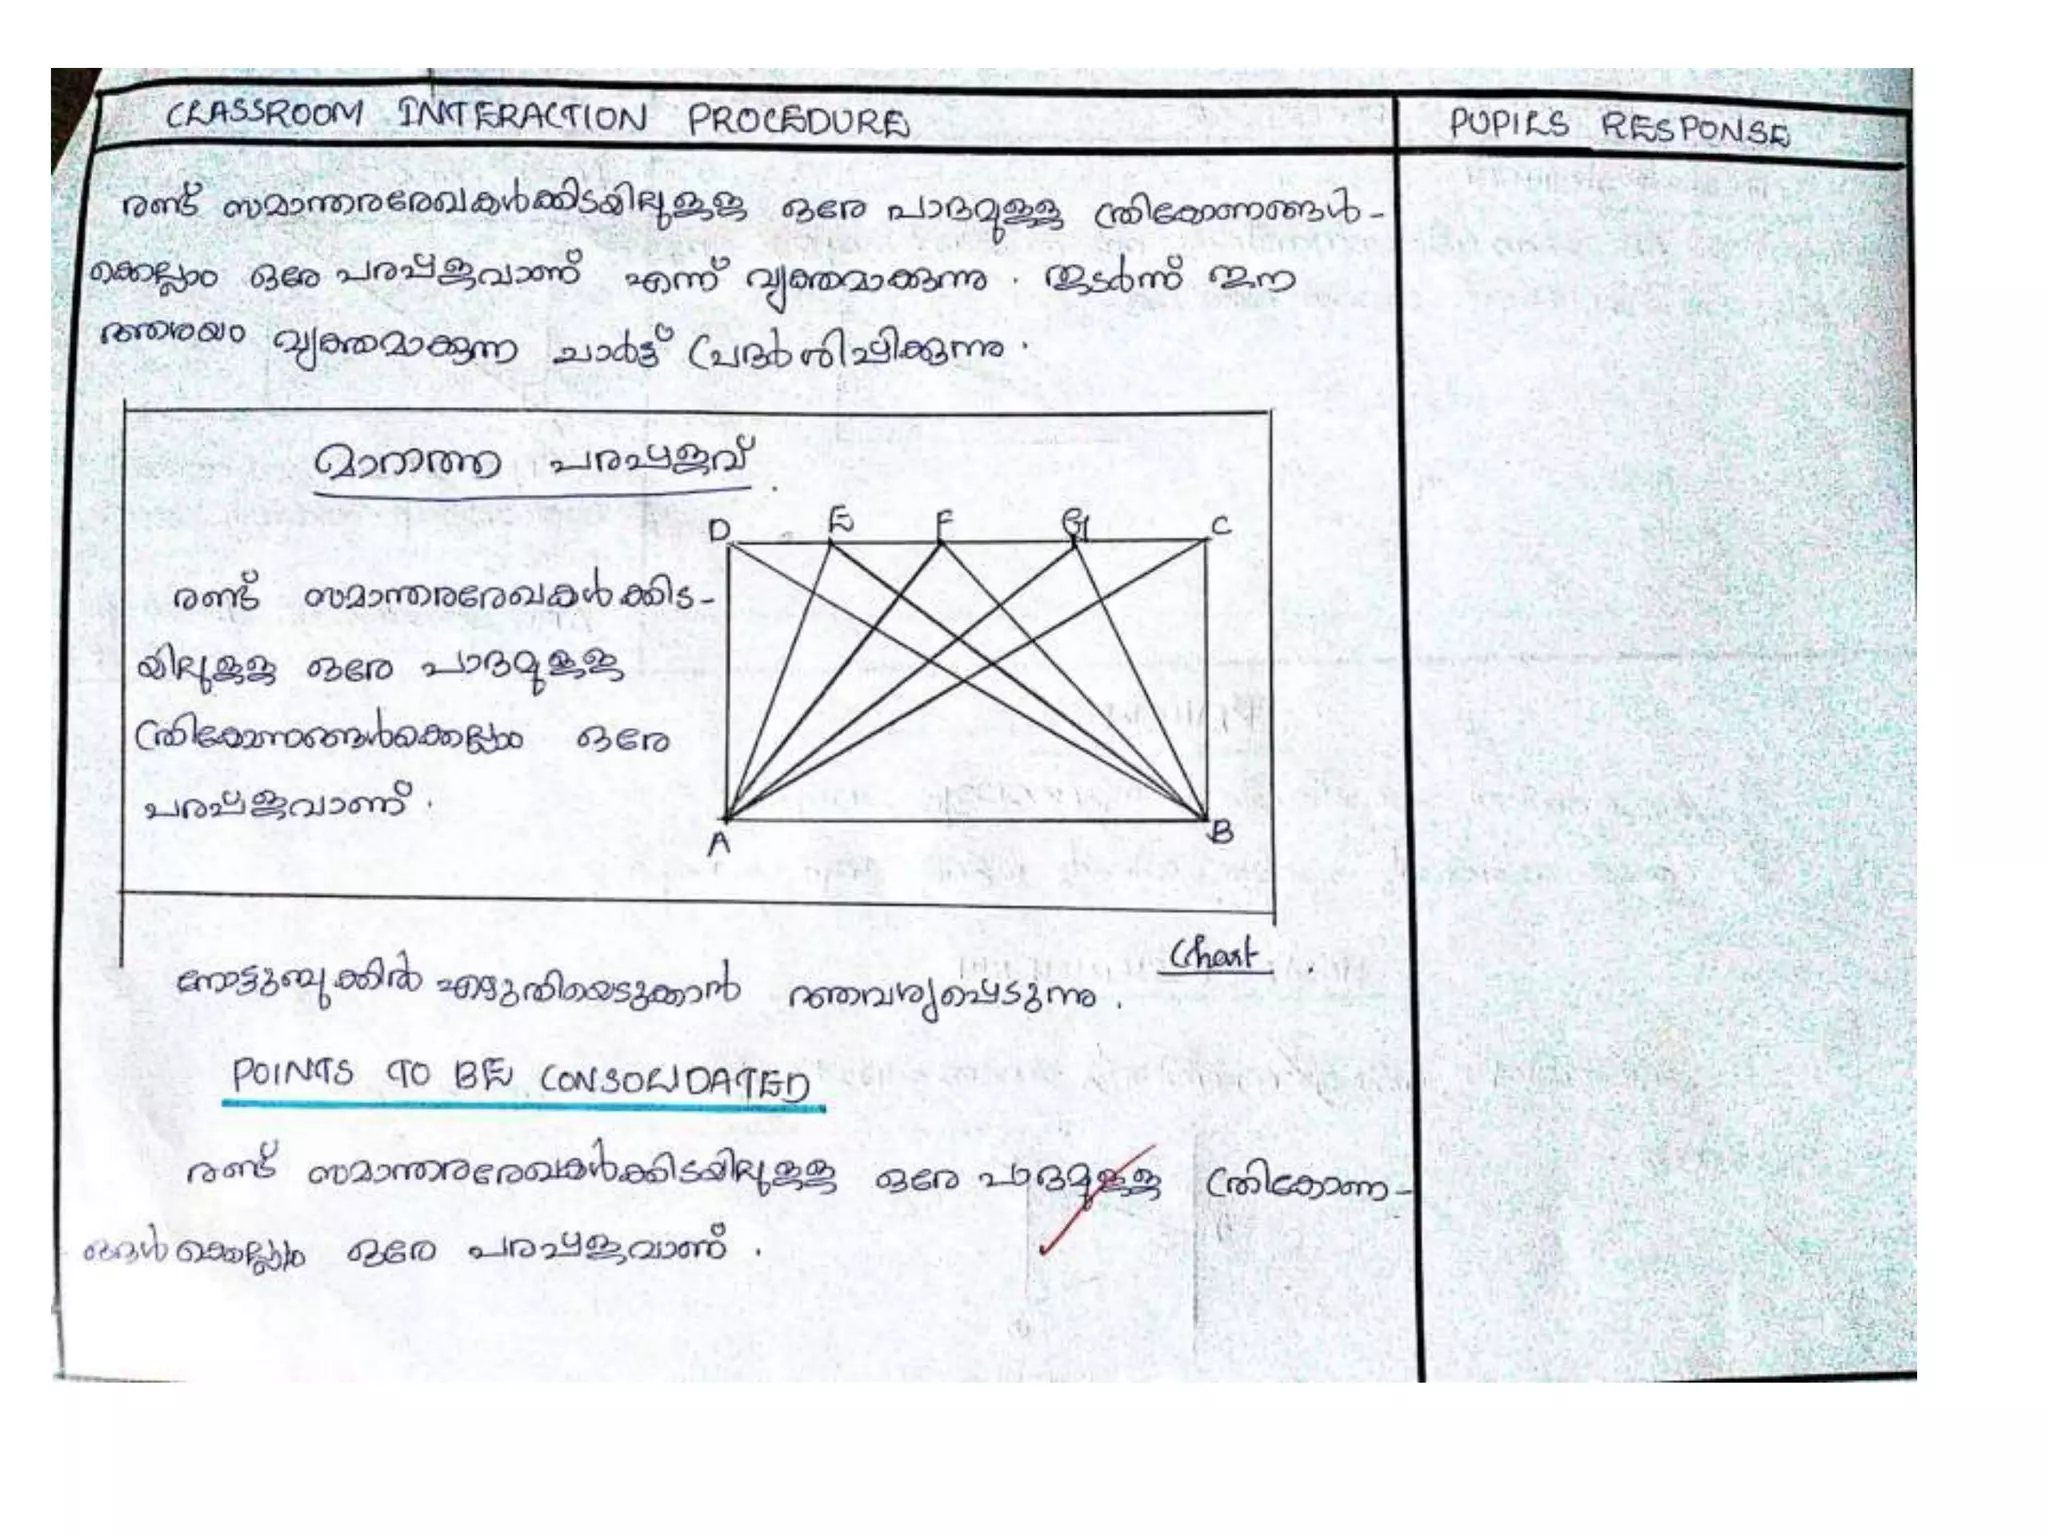 CLASSROOM INTERACTION PROCEDURE
PUPILS RESPONSE
രണ്ട് സമാന്തരരേഖകൾക്കിടയിലുള്ള ഒരേ പാദമുള്ള ത്രികോണങ്ങൾ-
ക്കെല്ലാം ഒരേ പരപ്പളവാണ് എന്ന് വ്യക്തമാക്കുന്നു. തുടർന്ന് ഈ
ആശയം വ്യക്തമാക്കുന്ന ചാർട്ട് പ്രദർശിപ്പിക്കുന്നു.
മാറാത്ത പരപ്പളവ്
D E F G C
രണ്ട് സമാന്തരരേഖകൾക്കിട-
യിലുള്ള ഒരേ പാദമുള്ള
ത്രികോണങ്ങൾക്കെല്ലാം ഒരേ
പരപ്പളവാണ്.
A B
Chart.
നോട്ടുബുക്കിൽ എഴുതിയെടുക്കാൻ ആവശ്യപ്പെടുന്നു.
POINTS TO BE CONSOLIDATED
രണ്ട് സമാന്തരരേഖകൾക്കിടയിലുള്ള ഒരേ പാദമുള്ള ത്രികോണ-
ങ്ങൾക്കെല്ലാം ഒരേ പരപ്പളവാണ്.